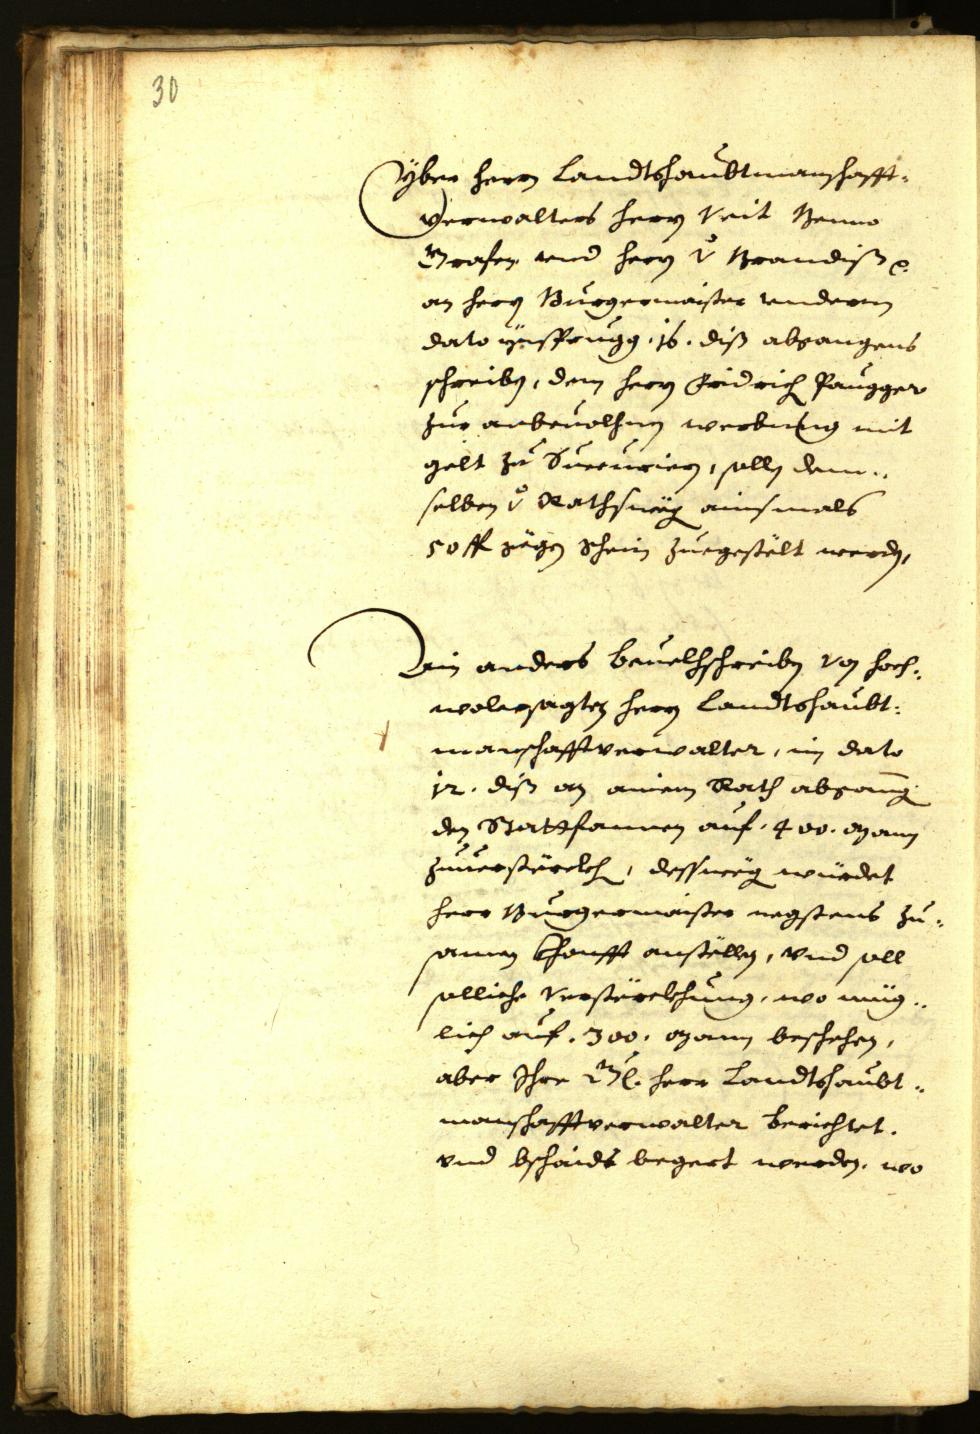 30
Yber herrn Landtshaubtmanschafft-
verwalters herrn Veit Benno
Grafen und herrn v Brandiß ꝛc.
an herrn Burgermaister underm
dato Ynsprugg 16. diß abgangens
schreiben, dem herrn Fridrich Paugger
zur anbevolhnen werbung mit
gelt zu Succurieren, solle dem-
selben v Rathsweg ainsmals
50 fl gegen Schein zuegestelt werden,
Ain anders bevelhschreiben von hoch-
wolersagten herrn Landtshaubt-
manschafftverwalter, im dato
12. diß an ainem Rath abgang
den Stattfannen auf 400. Mann
zuversterckhen, dessweg würdet
herr Burgermaister negstens zu-
samen khonfft anstellen, und soll
solliche versterckhung, wo müg-
lich auf 300. Mann beschehen,
aber Ihre Gl. herr Landtshaubt-
manschafftverwalter berichtet,
und bschaids begert werden, wo